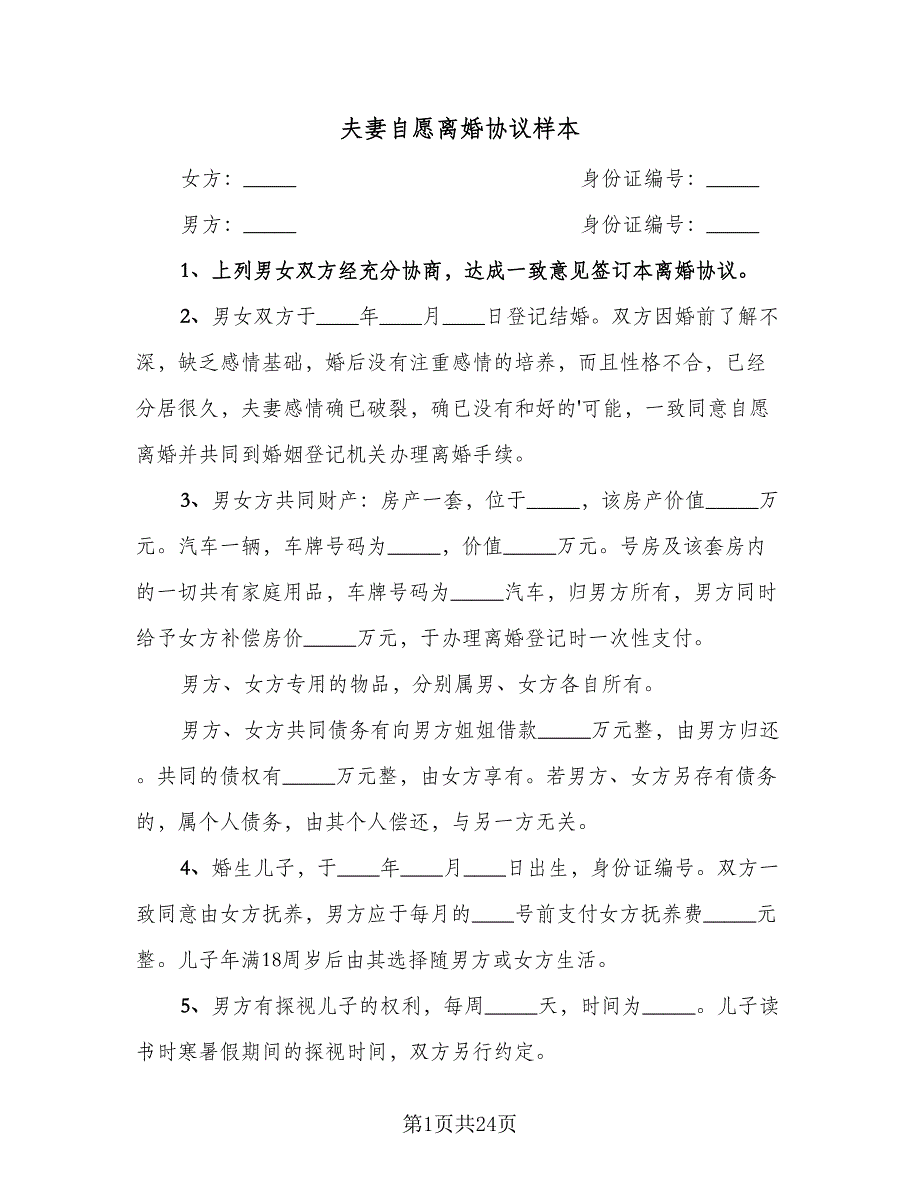 夫妻自愿离婚协议样本
女方：_____ 身份证编号：_____
男方：_____ 身份证编号：_____
1、上列男女双方经充分协商，达成一致意见签订本离婚协议。
2、男女双方于____年____月____日登记结婚。双方因婚前了解不
深，缺乏感情基础，婚后没有注重感情的培养，而且性格不合，已经
分居很久，夫妻感情确已破裂，确已没有和好的'可能，一致同意自愿
离婚并共同到婚姻登记机关办理离婚手续。
3、男女方共同财产：房产一套，位于_____，该房产价值_____万
元。汽车一辆，车牌号码为_____，价值_____万元。号房及该套房内
的一切共有家庭用品，车牌号码为_____汽车，归男方所有，男方同时
给予女方补偿房价_____万元，于办理离婚登记时一次性支付。
男方、女方专用的物品，分别属男、女方各自所有。
男方、女方共同债务有向男方姐姐借款_____万元整，由男方归还
。共同的债权有_____万元整，由女方享有。若男方、女方另存有债务
的，属个人债务，由其个人偿还，与另一方无关。
4、婚生儿子，于____年____月____日出生，身份证编号。双方一
致同意由女方抚养，男方应于每月的____号前支付女方抚养费_____元
整。儿子年满18周岁后由其选择随男方或女方生活。
5、男方有探视儿子的权利，每周_____天，时间为_____。儿子读
书时寒暑假期间的探视时间，双方另行约定。
第1页共24页